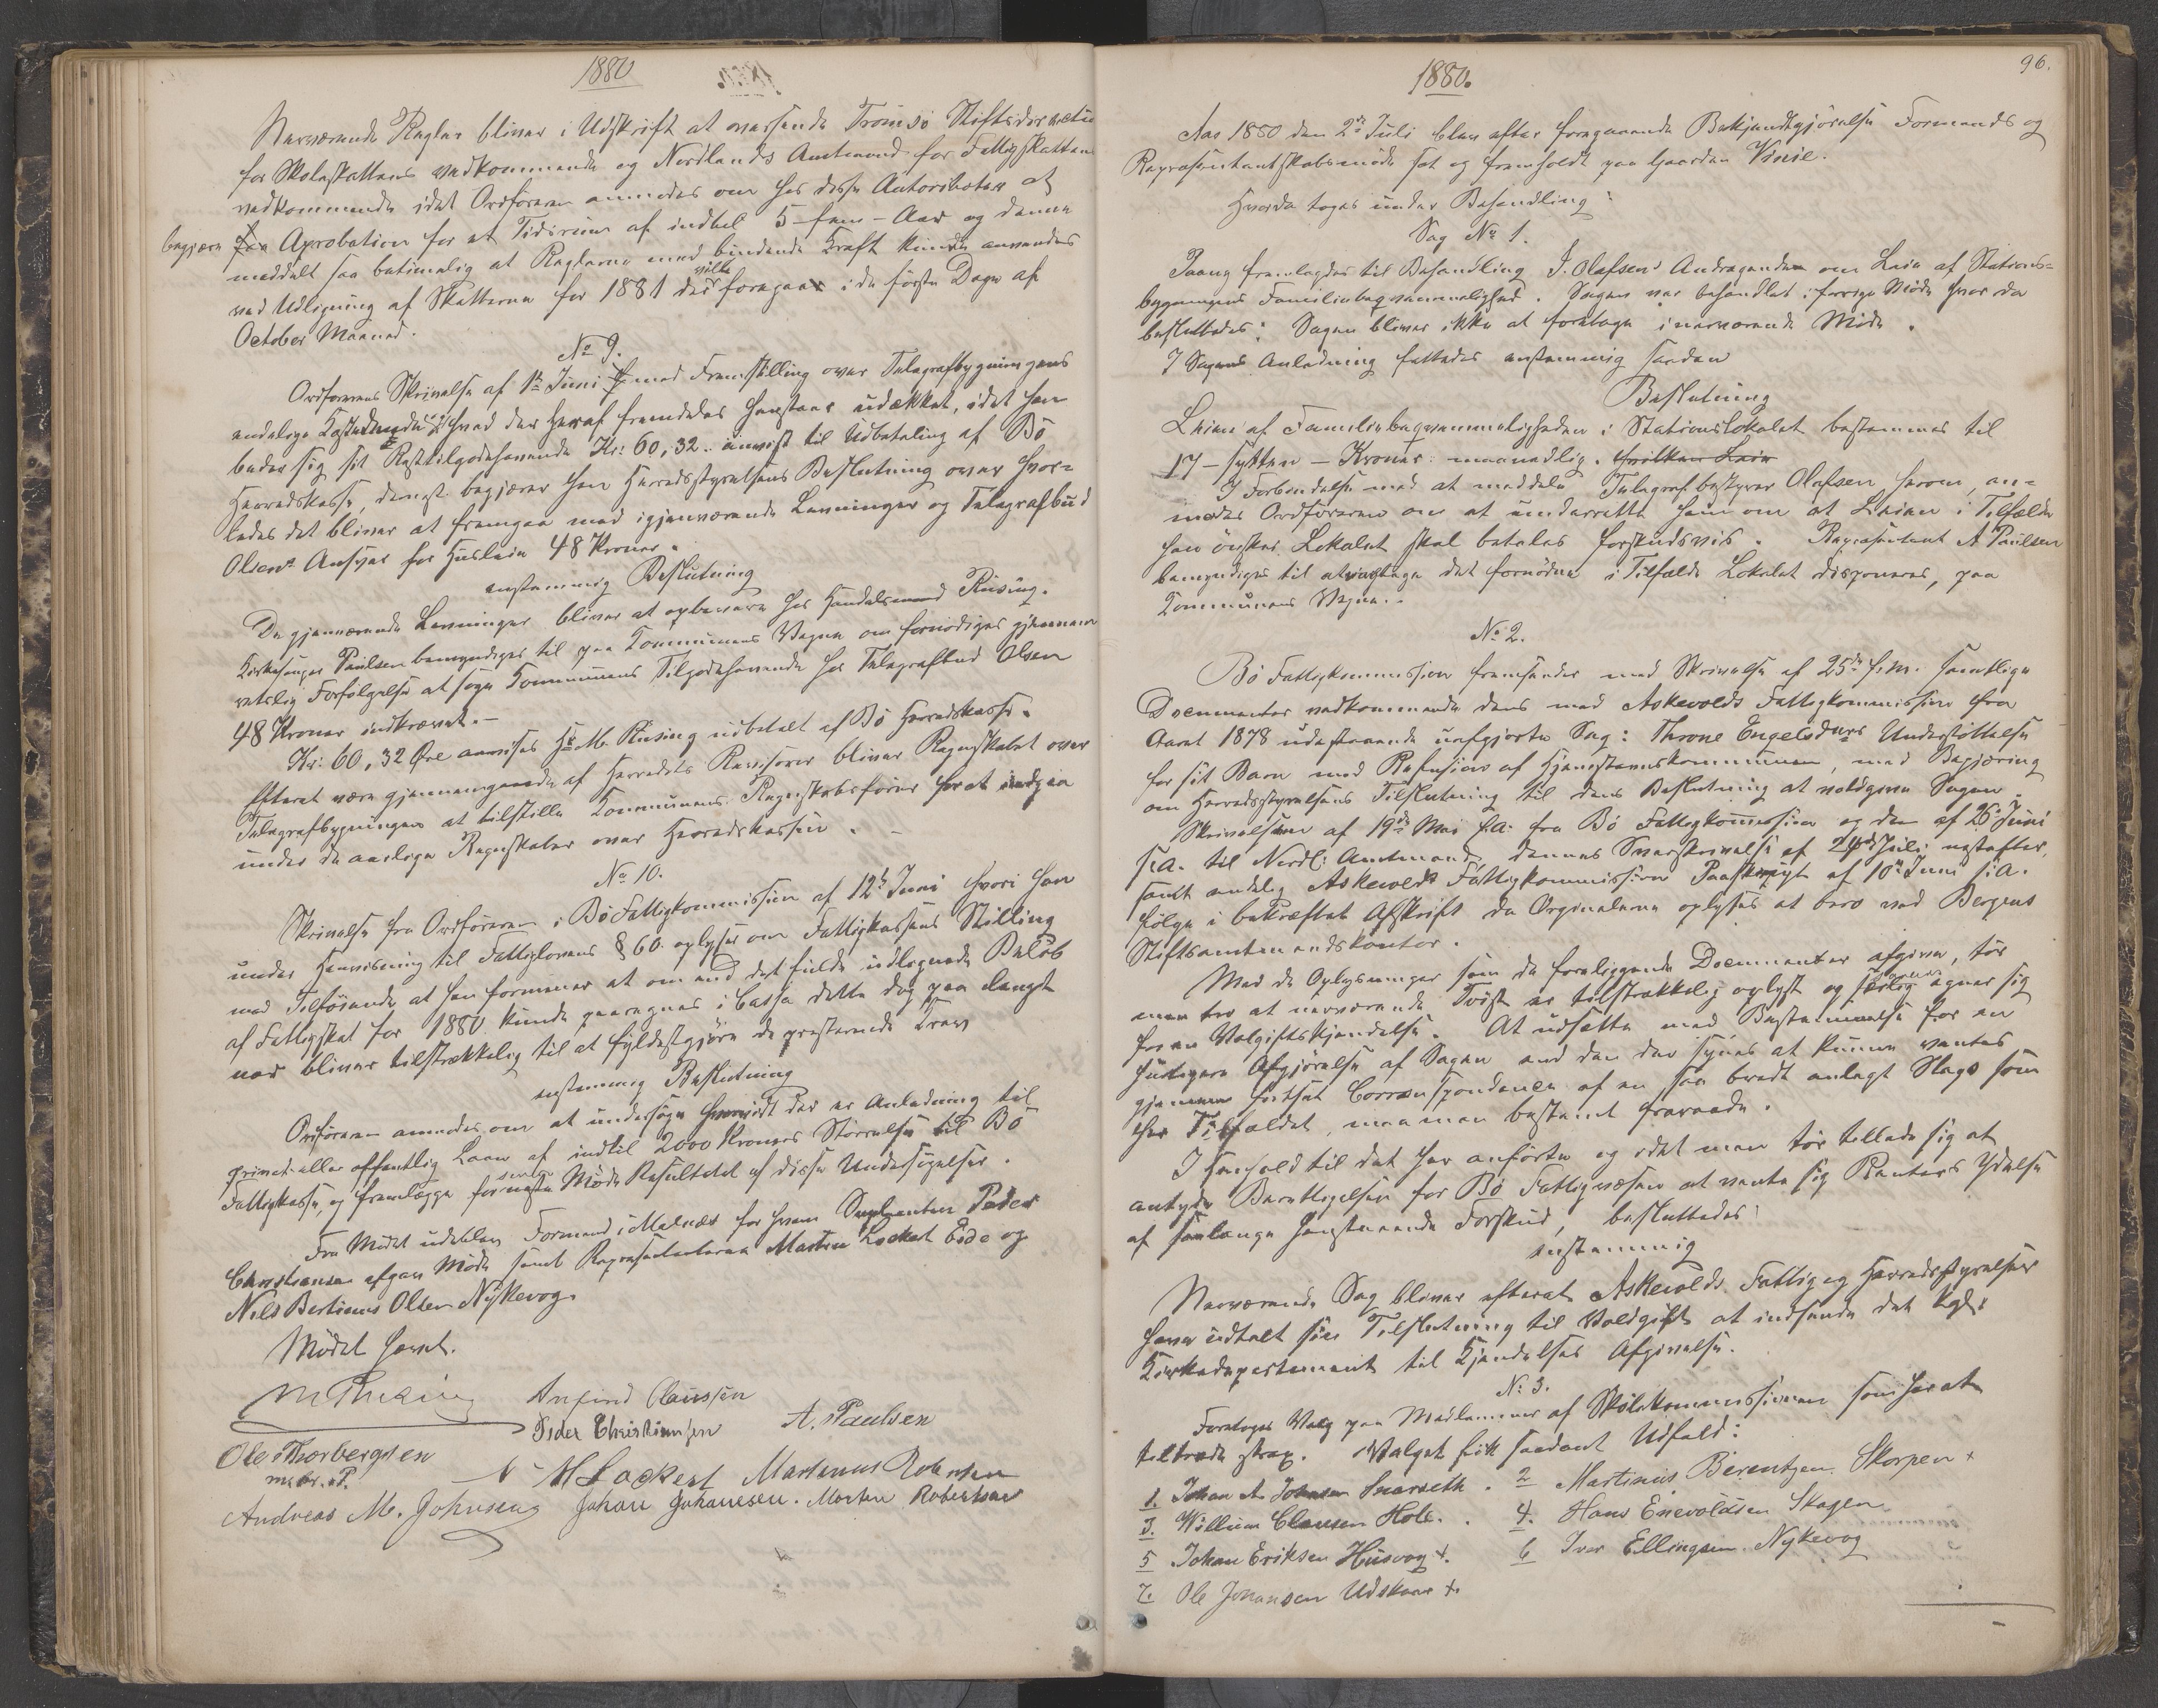 1880
Nærværende Regler bliver i Udskrift at oversende Tromsø Stiftsdirection
for Skoleskattens vedkommende og Nordlands Amtmand for Fattigskattens
vedkommende idet Ordføreren anmodes om hos disse Autoriteter at
begjære Aprobation for et Tidsrum af indtil 5 - fem - Aar og denne
meddelt saa betimelig at Reglerne med bindende Kraft kunde anvendes
ved Udligning af Skatterne for 1881 der vilde foregaa i de første Dage af
October Maaned.
No 9.
Ordførerens Skrivelse af 1ste Juni med Fremstilling over Telegrafbygningens
endelige Kostende hvad der heraf fremdeles henstaar udækket, idet han
beder sig sit Resttilgodehavende Kr: 60,32 anvist til Udbetaling af Bö
Herredskasse, dernæst begjærer han Herredsstyrelsens Beslutning over hvor-
ledes det bliver at fremgaa med igjenværende Levninger og Telegrafbud
Olsens Ansvar for Husleie 48 Kroner.
enstemmig Beslutning
De gjenværende Levninger bliver at opbevare hos Handelsmand Riising.
Kirkesanger Paulsen bemyndiges til paa Kommunens Vegne om fornödiges gjennem
retslig Forfølgelse at søge Kommunens Tilgodehavende hos Telegrafbud Olsen
48 Kroner inkrævet.-
Kr: 60,32 Øre anvises Hr M. Riising udbetalt af Bö Herredskasse.
Efterat være gjennemgaaede af Herredets Revisorer bliver Regnskabet over
Telegrafbygningen at tilstille Kommunens Regnskabsfører for at indgaa
under de aarlige Regnskaber over Herredskassen. -
No 10.
Skrivelse fra Ordføreren i Bö Fattigkommission af 12te Juni hvori han
under Henvisning til Fattiglovens § 60 oplyser om Fattigkassens Stilling
med Tilføiende at han formener at om end det fulde udlignede Beløb
af Fattigskat for 1880 kunde paaregnes i Cassa dette dog paa langt
nær bliver tilstrækkelig til at fyldestgjøre de præsterende Krav
enstemmig Beslutning
Ordføreren anmodes om at undersøge hvorvidt der er Anledning til
privat eller offentlig Laan af indtil 2000 Kroners Størrelse til Bö
Fattigkasse, og fremlægge for næste Møde Resultatet af disse Undersøgelser.
Fra Mødet udeblev Formand i Malnæs for hvem Suplenten Peder
Christiansen afgav Møde samt Repræsentanterne Martin Lockert Eide og
Nils Bertinus Olsen Nykevog.
Mødet hævet.
M Riising Anfind Claussen
Peder Christiansen A. Paulsen
Ole Thorbergsen
m. p. P.
H Lockert Martinus Robertsen
Andreas M. Johnsen Johan Johanesen. Morten Robertsen
96.
1880.
Aar 1880 den 2den Juli blev efter foregaaende Bekjendtgjørelse Formands og
Repræsentantskabsmøde sat og fremholdt paa Gaarden Vinie.
Hvorda toges under Behandling:
Sag No 1.
Paany fremlagdes til Behandling J. Olafsens Andragende om Leie af Stations-
bygningens Familiebeqvemmelighed. Sagen var behandlet i forrige Møde hvor da
besluttedes: Sagen bliver ikke at foretage i nærværende Møde.
I Sagens Anledning fattedes enstemmig saadan
Beslutning
Leien af Familiebeqvemmeligheden i Stationslokalet bestemmes til
17 - sytten - Kroner maanedlig. hvilken Leie
I Forbindelse med at meddele Telegrafbestyrer Olafsen herom, an-
modes Ordføreren om at underrette ham om at Leien i Tilfælde
han ønsker Lokalet skal betales forskudsvis. Repræsentant A Paulsen
bemyndiges til at iagttage det fornødne i Tilfælde Lokalet disponeres, paa
Kommunens Vegne.-
No 2.
Bö Fattigkommission fremsender med Skrivelse af 25de f.m. samtlige
Documenter vedkommende dens med Askevolds Fattigkommission fra
Aaret 1878 udestaaende uafgjorte Sag: Throne Engelsdtrs Understøttelse
for sit Barn med Refusion af Hjemstavnskommunen, med Begjæring
om Herredsstyrelsens Tilslutning til dens Beslutning at voldgive Sagen.
Skrivelsen af 19de Mai f.A. fra Bö Fattigkommission og den af 26 Juni
s.A. til Nordl: Amtmand, dennes Svarskrivelse af Juli næstefter,
samt endelig Askevolds Fattigkommission Paaskrift af 10de Juni s.A.
følge i bekræftet Afskrift da Orginalerne oplyses at bero ved Bergens
Stiftsamtmandskontor.
Med de Oplysninger som de foreliggende Documenter afgiver, tør
man tro at nærværende Tvist er tilstrækkelig oplyst og egner sig
for en Voldgiftskjendelse. At udsætte med Bestemmelse for en
hurtigere Afgjørelse af Sagen end den der synes at kunne ventes
gjennem fortsat Correspondence af en saa bredt anlagt Slags som
her Tilfældet, maa man bestemt fraraade.
I Henhold til det her anførte og idet man tør tillade sig at
antyde Berettigelsen for Bö Fattigvæsen at vente sig Renters Ydelse
af saalænge henstaaende Forskud, besluttedes
enstemmig
Nærværende Sag bliver efterat Askevolds Fattig og Herredsstyrelser
have udtalt sin Tilslutning til Voldgift at indsende det Kgl:
Kirkedepartement til Kjendelses Afgivelse.
No 3.
Foretoges Valg paa Medlemmer af Skolekommissionen som har at
tiltræde strax. Valget fik saadant Udfald:
1. Johan A Johnsen Snarseth. 2 Martinus Berentzen Skorpen +
3. Willum Clausen Hole. . 4. Hans Enevoldsen Skagen
5 Johan Eriksen Husvog +. 6 Iver Ellingsen Nykevog
7. Ole Johansen Udskaar +.